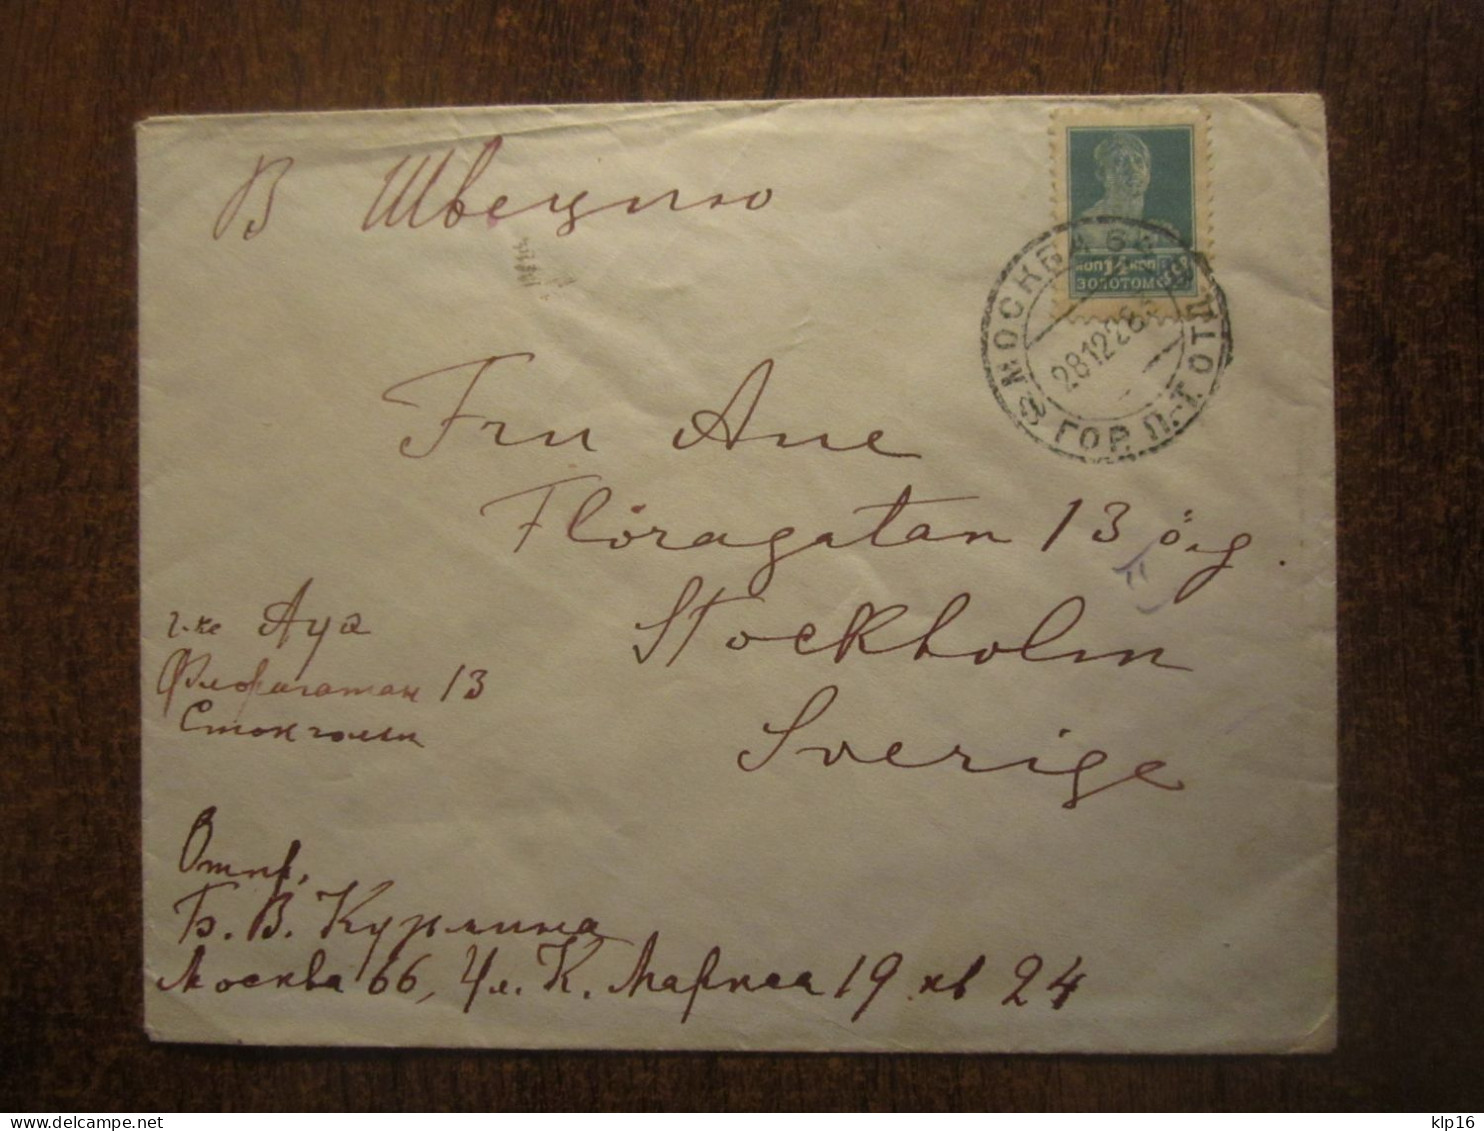 В Швецию
КОП 14 КОП
ЗОЛОТОМ
МОСКВА 66
28.12.26
ГОР. П.-Т. ОТД
Fru Aue
Floragatan 13 ög.
Stockholm
Sverige
г-же Ауэ
Флорагатан 13
Стокгольм
Отпр.
Б. В. Курлина
Москва 66, Ул. К. Маркса 19 кв 24
klp16